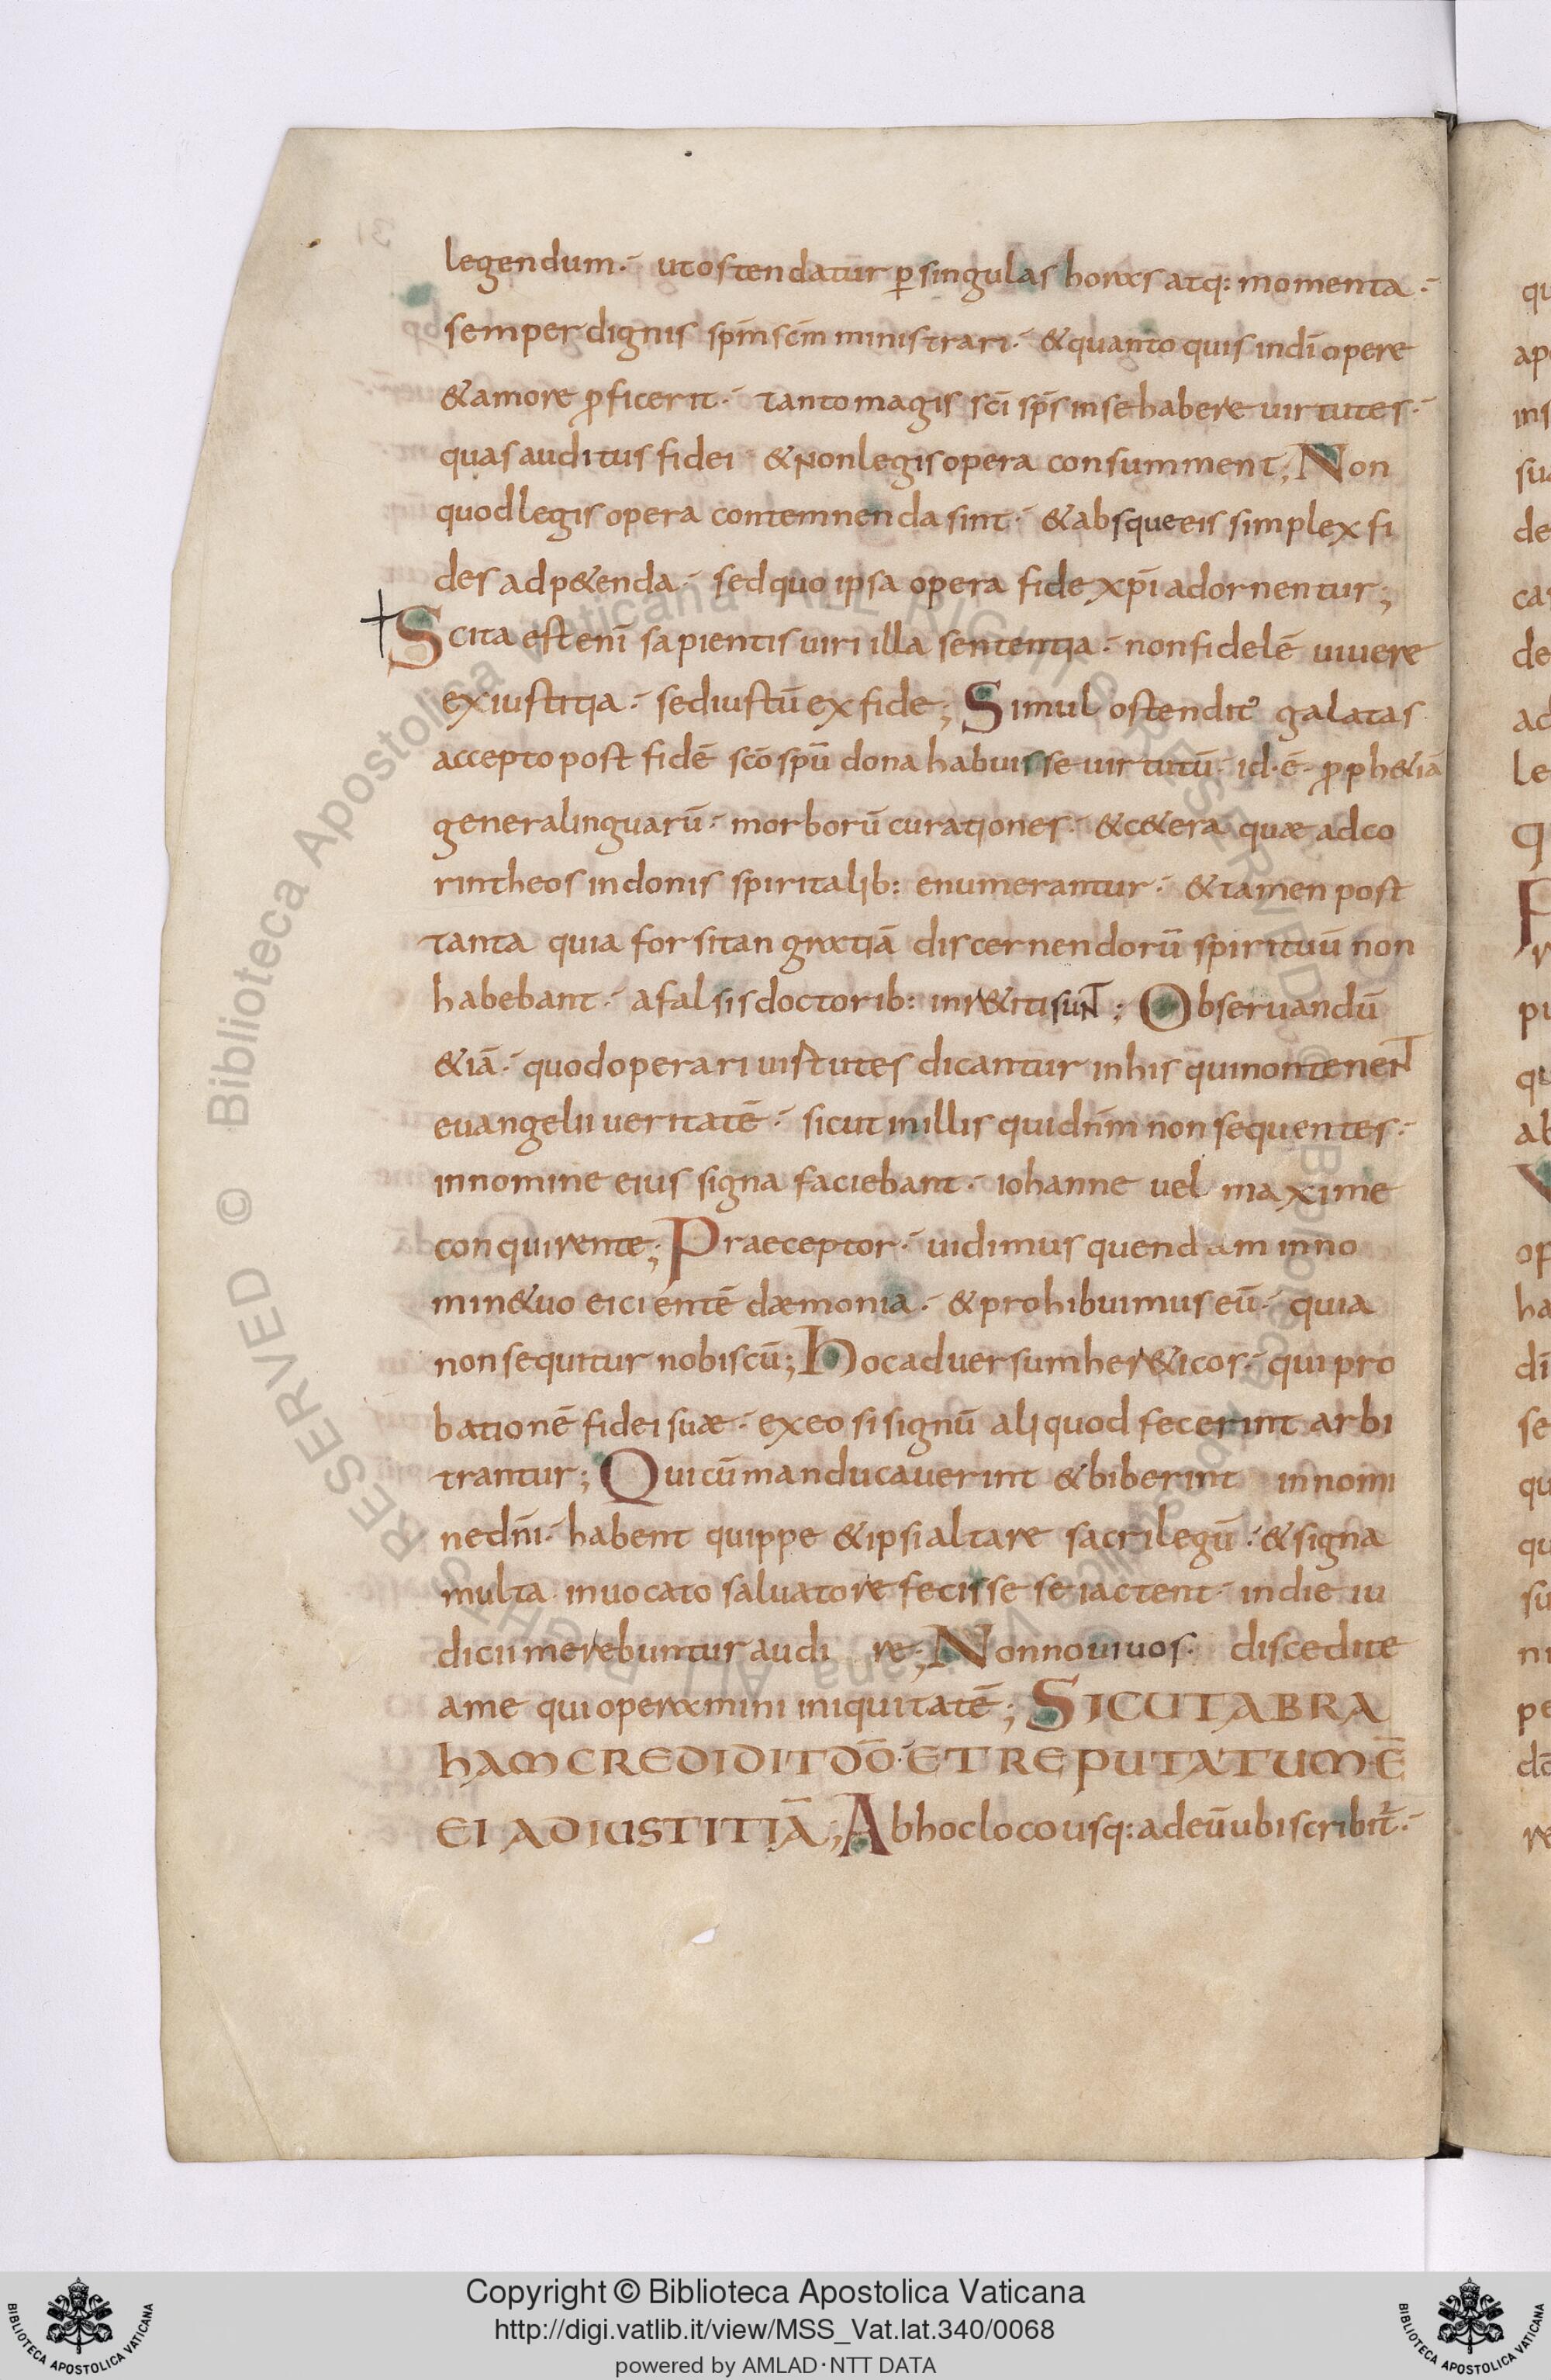 legendum·- ut ostendatur p̄ singulas horas atq: momenta·-
semper dignis sp̄m sc̄m ministrari·- & quanto quis in dī opere
& amore ꝓficerit·- tanto magis sc̄i sp̄s in se habere uirtutes·-
quas auditus fidei & non legis opera consumment; Non
quod legis opera contemnenda sint·- & absque eis simplex fi
des adp&enda·- sed quo ipsa opera fide xp̄i adornentur;
Scita est enī sapientis uiri illa sententia·- non fidelē uiuere
ex iustitia·- sed iustū ex fide; Simul ostendit᷑ galatas
accepto post fidē sc̄o spū dona habuisse uirtutū· id·ē· ꝓph&iā
genera linguarū·- morborū curationes·- & c&era quæ ad co
rintheos in donis spiritalib: enumerantur·- & tamen post
tanta quia forsitan gratiā discernendorū spirituū non
habebant·- a falsis doctorib: inr&iti sunt; Obseruandū
&iā·- quod operari uirtutes dicantur in his qui non tenent
euangelii ueritatē·- sicut in illis qui dn̄m non sequentes·-
in nomine eius signa faciebant·- iohanne uel maxime
conquirente; Praeceptor·- uidimus quendam in no
min& uo eicientē dæmonia·- & prohibuimus eū·- quia
non sequitur nobiscū; hoc aduersum her&icos·- qui pro
bationē fidei suæ·- ex eo si signū aliquod fecerint arbi
trantur; Qui cū manducauerint & biberint in nomi
ne dn̄i·- habent quippe & ipsi altare sacrilegū·- & signa
multa· inuocato saluatore fecisse se iactent·- in die iu
dicii merebuntur audi re; Non noui uos· discedite
a me qui operamini iniquitatē; SICUT ABRA
hAM CREDIDIT D̄O·- ET REPUTATUM· Ē
EI AD IUSTITIĀ; Ab hoc loco usq: ad eū ubi scribit᷑·-
Copyright © Biblioteca Apostolica Vaticana
http://digi.vatlib.it/view/MSS_Vat.lat.340/0068
powered by AMLAD·NTT DATA